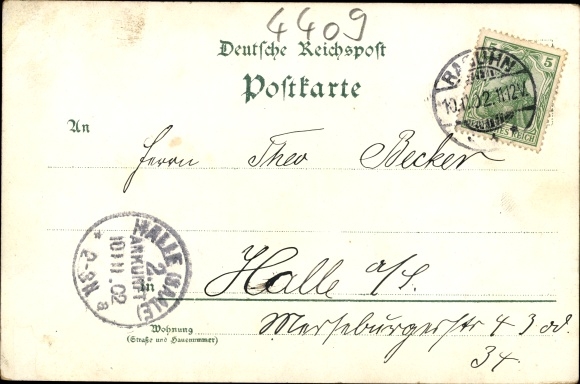 4409
Deutsche Reichspost
Postkarte
5 5
RAGUHN
11-12V.
An
Herrn Theo Becker
HALLE (SAALE)
2.
ANKUNFT
02
2-3N
a
in Halle a/S.
Wohnung
(Straße und Hausnummer)
Merseburgerstr 43 od.
34